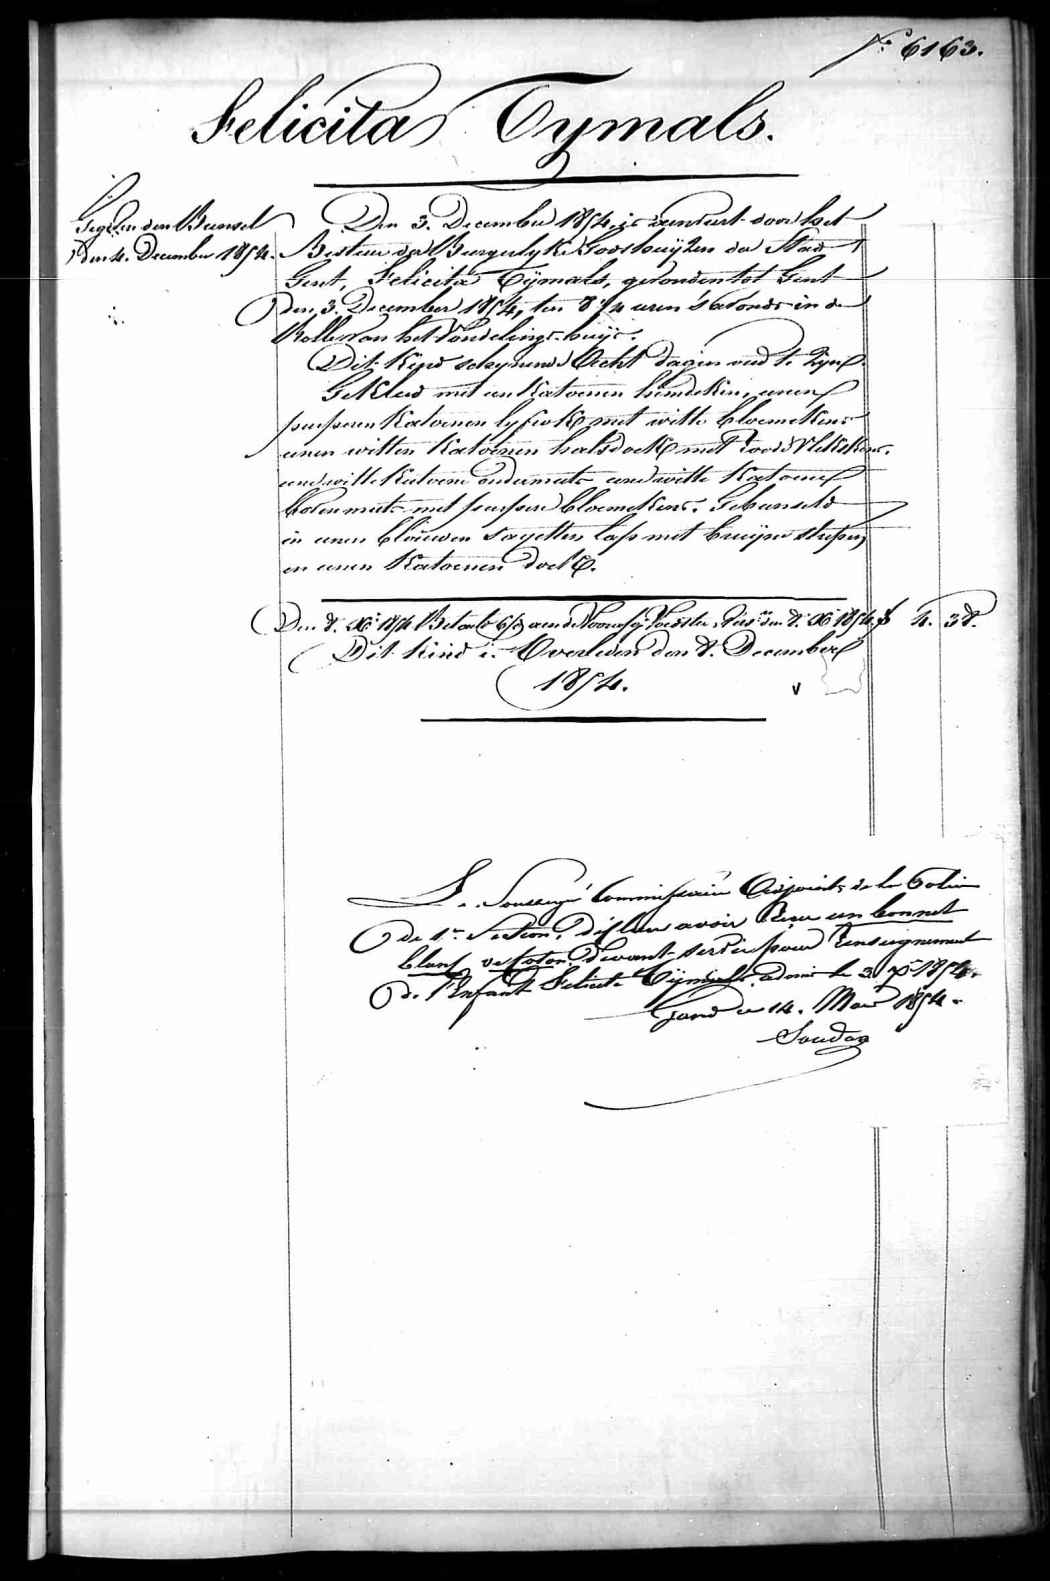 Nº 6163.
Felicita Tymals.
Gegeven den Bunsel
Den 4. December 1854.
Den 3. December 1854, is aenveert door het
Bestuer der Burgerlyke Godshuyzen der Stad
Gent, Felicita Tÿmals, gevonden tot Gent
den 3. December 1854, ten 8 1/4 uren s'avonds in de
Rolle van het Vondelings-huys.
Dit Kind schynende Acht dagen oud te zyn
Gekleed met een Katoenen hemdeken, eenen
purperen Katoenen lyfrok met witte bloemekens
eenen witten Katoenen halsdoek met roode Vlekskens,
eene witte Katoene ondermuts eene witte Katoene
boven muts met purpere bloemekens. Gebunseld
in eenen blauwen sayetten lap met bruyne strepen
en eenen Katoenen doek.
Den 8. Xb. 1854 Betaelt aen de Voedster den 8. Xb 1854 f 4. 38.
Dit kind is Overleden den 8. December
1854.
Le Soussigné Commissaire Adjoint de la Police
de 1re Section, déclare avoir Reçu un bonnet
blanc de Coton devant servir pour Renseignement
de l'Enfant Felicita Tÿmals, admis le 3 Xb 1854.
Gand ce 14. Mars 1854.